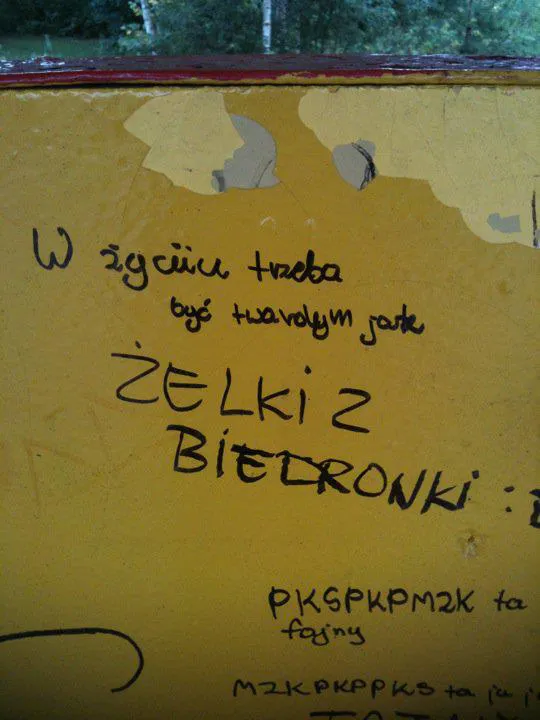 W życiu trzeba
być twardym jak
ŻELKI Z
BIEDRONKI :D
PKSPKPMZK ta
fajny
MZKPKPPKS ta ja